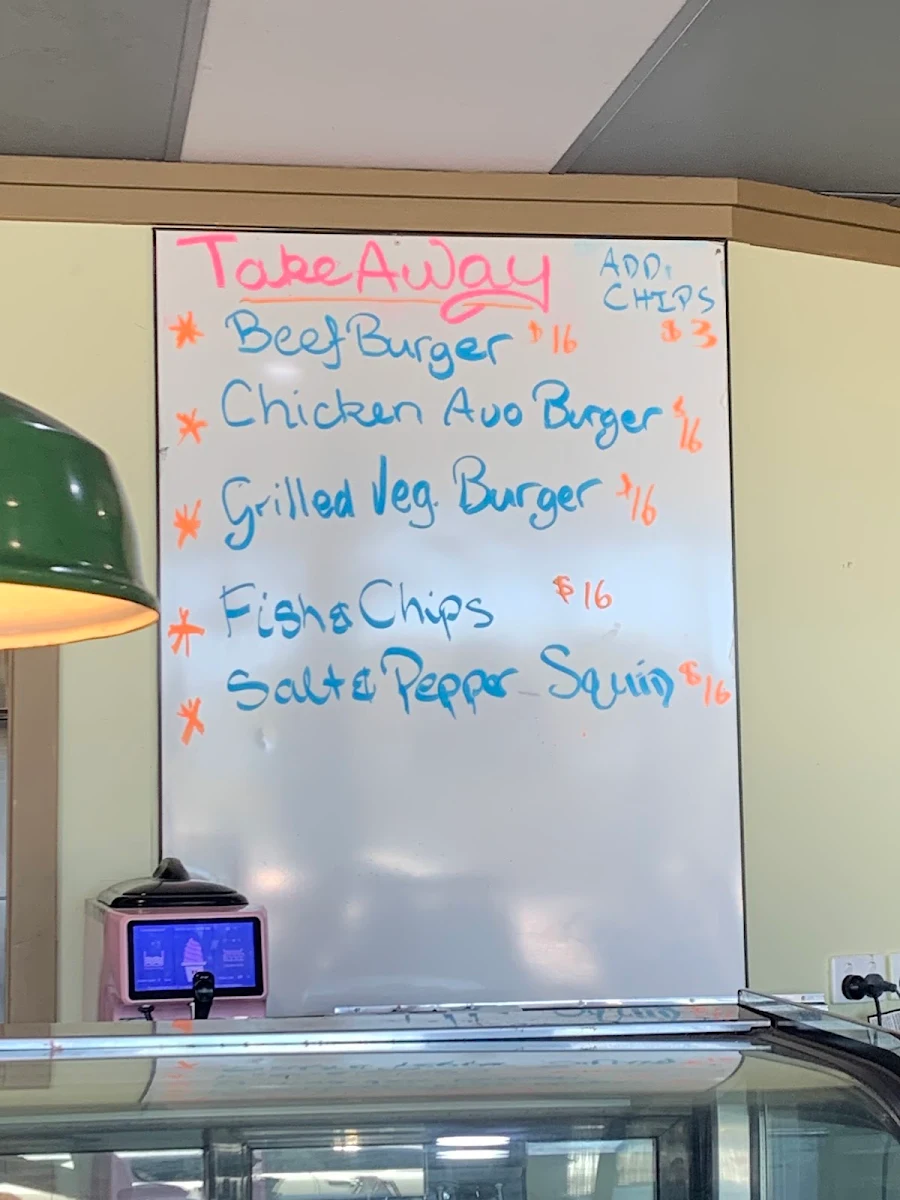 TakeAway
ADD.
CHIPS
$3
* Beef Burger $16
* Chicken Avo Burger $16
* Grilled Veg. Burger $16
* Fish & Chips $16
* Salt & Pepper Squid $16